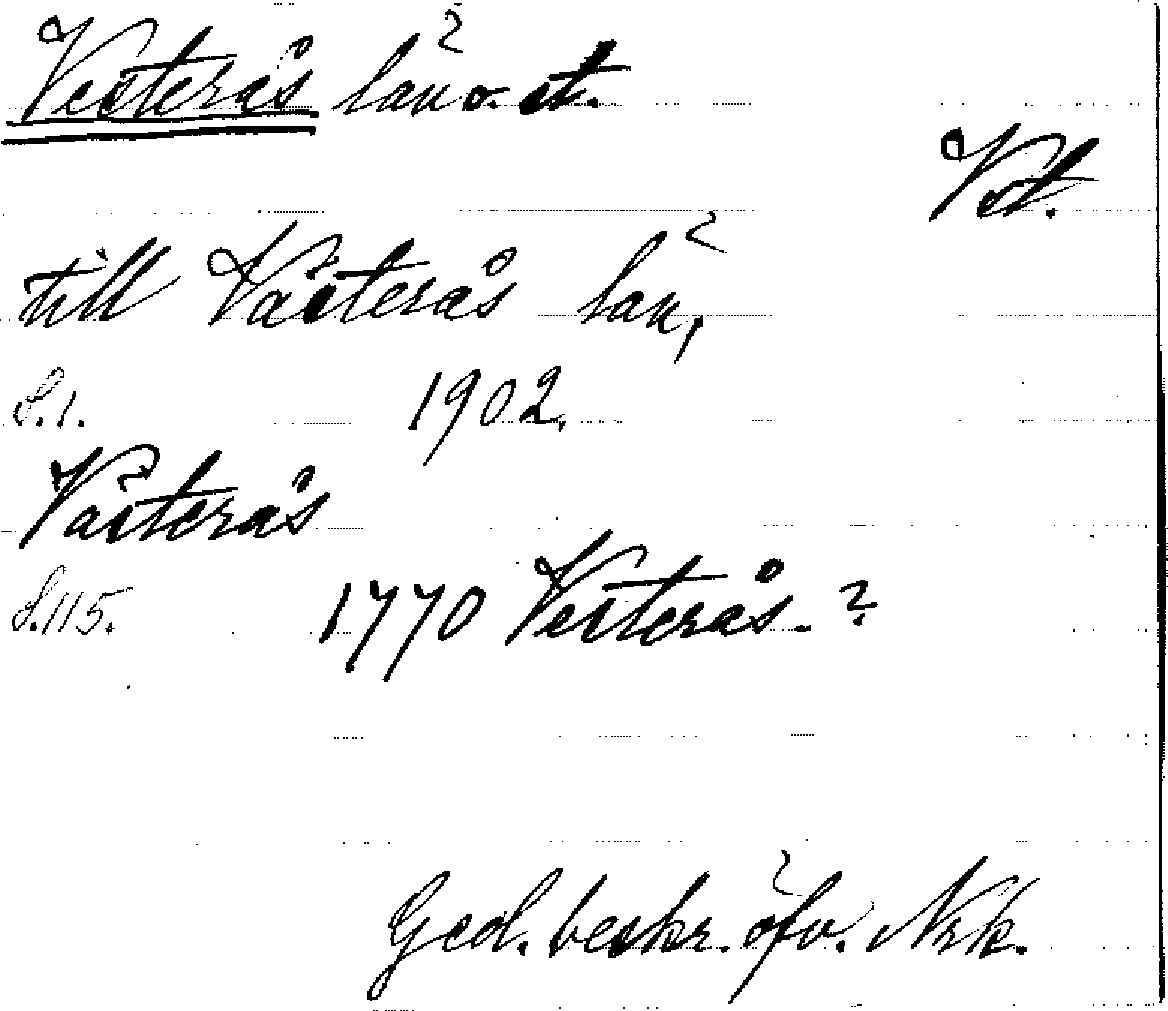 Vesterås län o. st.
Vst.
till Västerås län,
S.1. 1902.
Västerås
S.115. 1770 Vesterås. ?
Geol. beskr. öfv. Nrk.